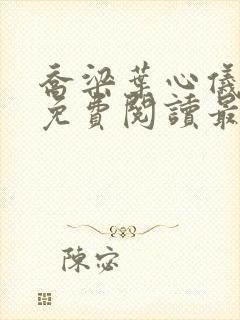 喬梁葉心儀
免費閱讀最
陳宓